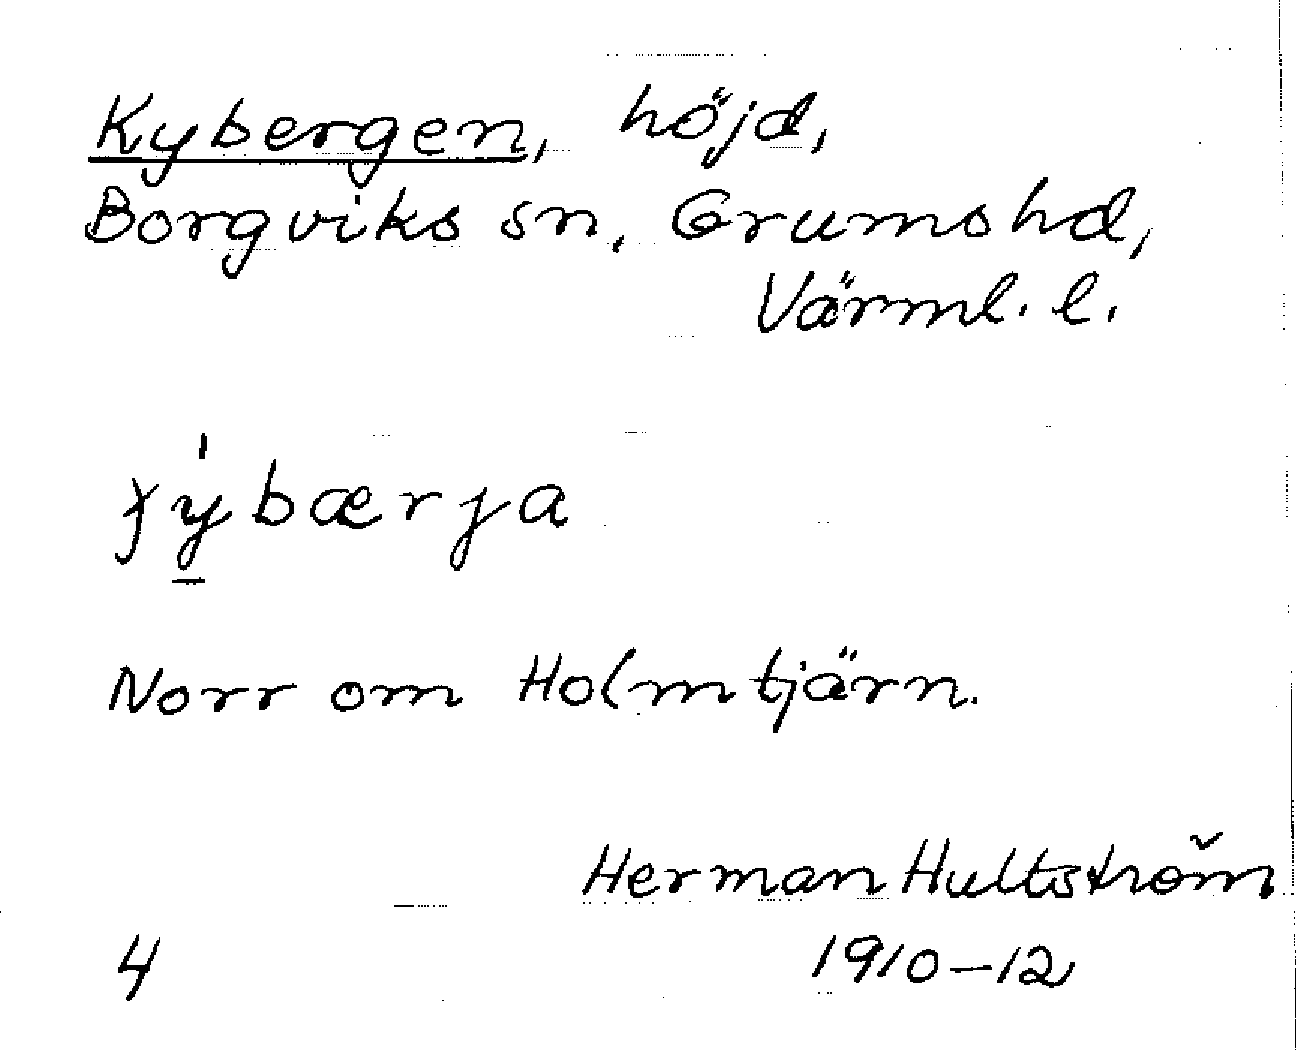 Kybergen, höjd,
Borgviks sn, Grums hd,
Värml. l.
ɟy̠̍bærja
Norr om Holmtjärn.
Herman Hultström
4 1910-12